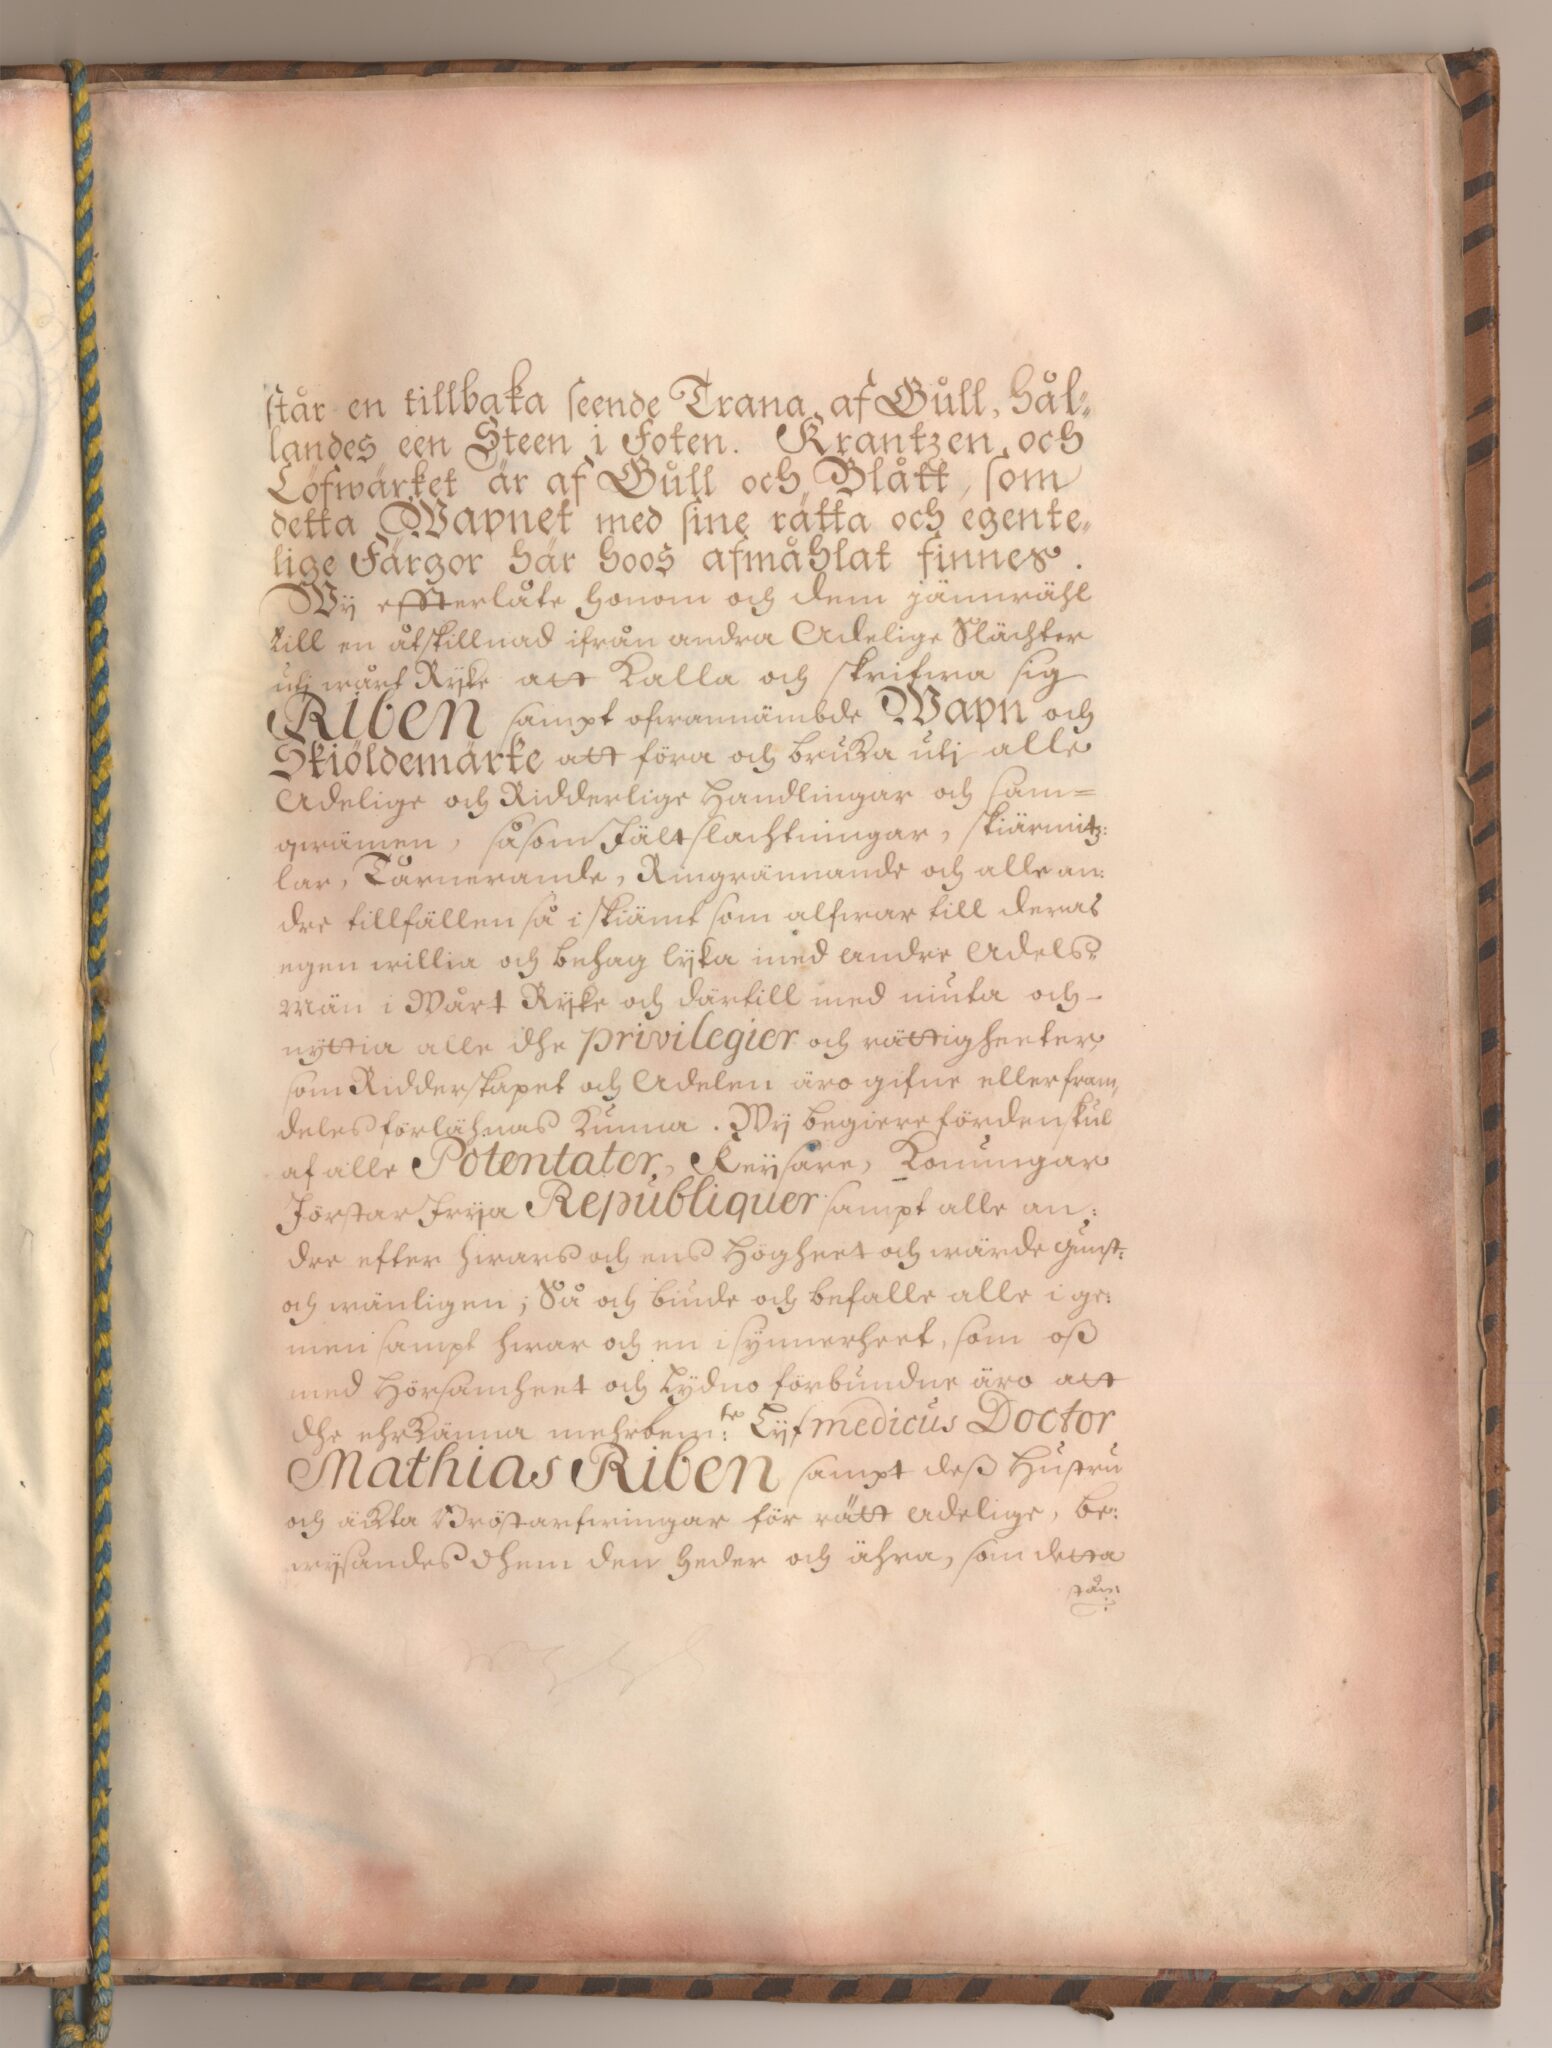 står en tillbaka seende Trana af Gull, hål-
landes een Steen i Foten. Krantzen och
Löfwärket är af Gull och Blått, som
detta Wapnet med sine rätta och egente-
lige Färgor här hoos afmåhlat finnes.
Wy effterlåte honom och dem jämwähl
till en åtskillnad ifrån andra Adelige Slächter
utj wårt Ryke att Kalla och skrifwa sig
RIBEN sampt ofwannämbde Wapn och
Skiöldemärke att föra och bruka utj alle
Adelige och Ridderlige Handlingar och sam=
qwämen, såsom Fältslachtningar, skiärmitz:
lar, Tårnerande, Ringrännande och alle an:
dre tillfällen så i skiämt som alfwar till deras
egen willia och behag lyka med andre Adels-
män i Wårt Ryke och därtill med niuta och-
nyttia alle dhe privilegier och rättigheeter,
som Ridderskapet och Adelen äro gifne eller fram,
deles förlähnas kunna. Wy begiere fördenskul
af alle Potentater, Keysare, Konungar
Förstar Frya Republiquer sampt alle an:
dre efter hwars och ens Högheet och wärde gunst:
och wänligen; Så och biude och befalle alle i ge:
men sampt hwar och en i synnerheet, som oß
med Hörsamheet och Lydno förbundne äro att
dhe ehrkänna mehrbem:te Lyfmedicus Doctor
Mathias Riben sampt deß Hustru
och äkta Bröstarfwingar för rätt Adelige, be:
wysandes dhem den heder och ähra, som detta
stån: